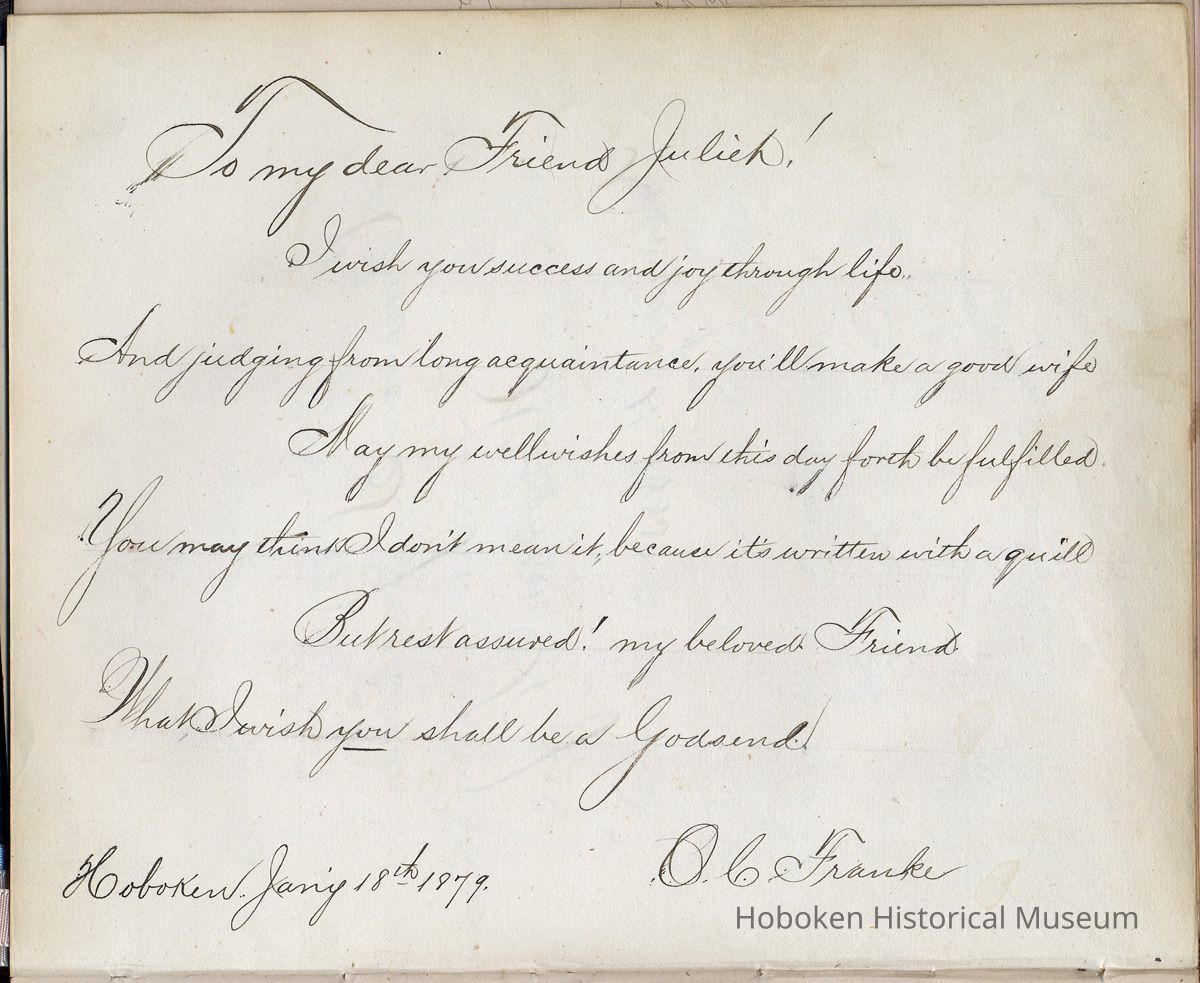 To my dear Friend Julieh!
I wish you success and joy through life.
And judging from long acquaintance, you'll make a good wife
May my well wishes from this day forth be fulfilled.
You may think I don't mean it, because it's written with a quill
But rest assured! my beloved Friend
What I wish you shall be a Godsend!
Hoboken. Jan'y 18th 1879.
O. C. Franke
Hoboken Historical Museum